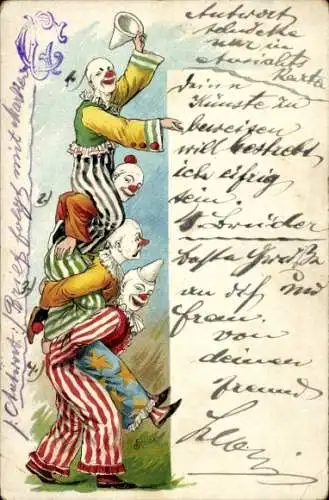 Antwort
schicke
nur in
Ansichts
karte
Deine
Künste zu
beweisen
will bestrebt
ich eifrig
sein.
4 Brüder
Beste Grüße
an dich und
frau. von
deinem
freund
1)
2)
3)
4)
Antwort: Brief folgt mit